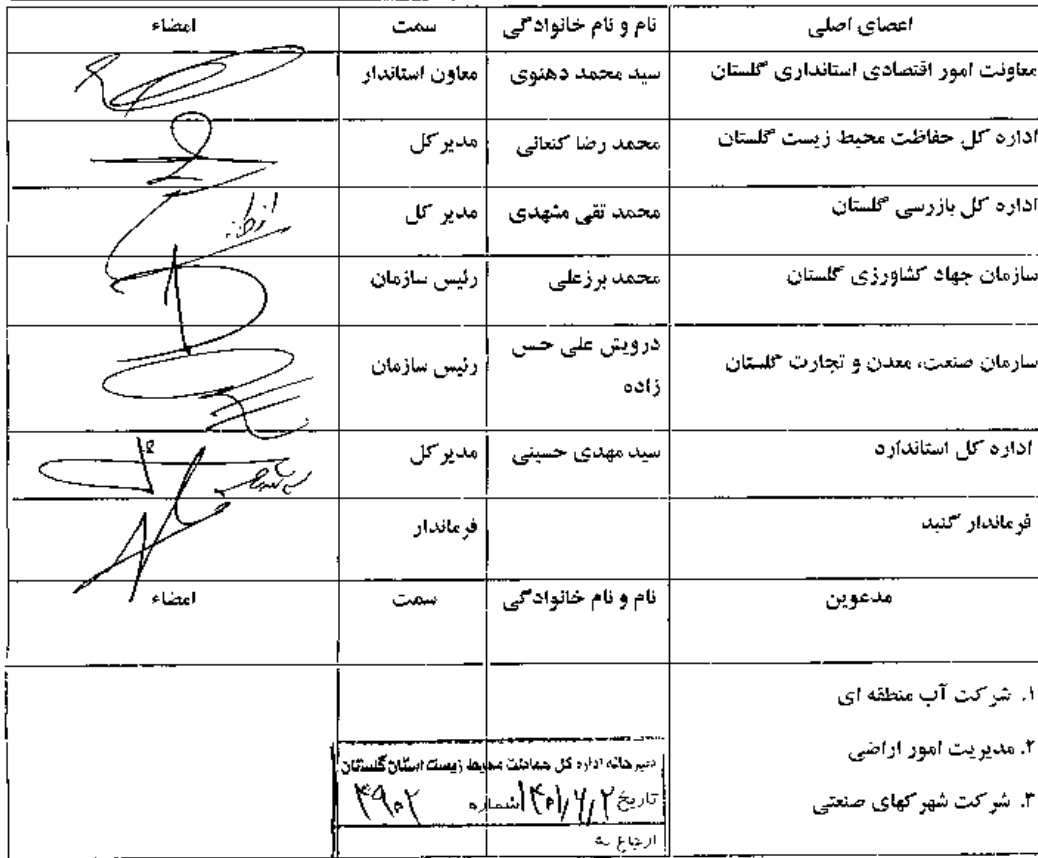 اعضای اصلی نام و نام خانوادگی سمت امضاء
معاونت امور اقتصادی استانداری گلستان سید محمد دهنوی معاون استاندار
اداره کل حفاظت محیط زیست گلستان محمد رضا کنعانی مدیر کل
اداره کل بازرسی گلستان محمد تقی مشهدی مدیر کل
سازمان جهاد کشاورزی گلستان محمد برزعلی رئیس سازمان
سازمان صنعت، معدن و تجارت گلستان درویش علی حسن رئیس سازمان
زاده
اداره کل استاندارد سید مهدی حسینی مدیر کل
فرماندار گنبد فرماندار
مدعوین نام و نام خانوادگی سمت امضاء
۱. شرکت آب منطقه ای
۲. مدیریت امور اراضی
۳. شرکت شهرکهای صنعتی
دبیرخانه اداره کل حفاظت محیط زیست استان گلستان
تاریخ شماره ۴۹۰۲
ارجاع به